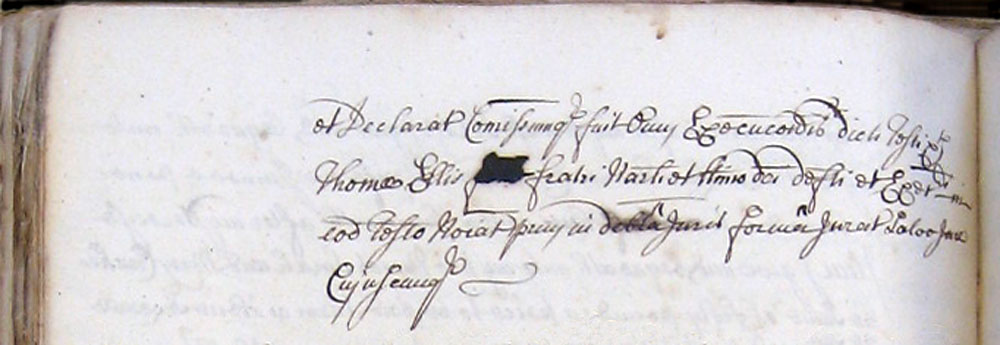 et Declarat Comissumq fuit Onus Execucoīs dicti Testi
Thomæ Ellis fratri Nāli et ltimo dci defti et Exet in
eod Testo Noīat prius in debtā Juris formā Jurat Salvo Jure
Cujuscunq